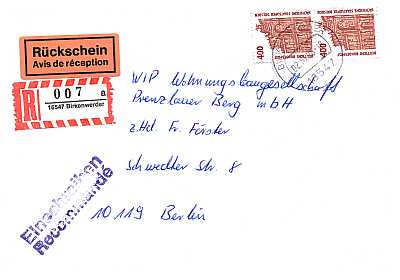 Rückschein
Avis de réception
R
007 a
16547 Birkenwerder
400
400
WIP Wohnungsbaugesellschaft
Prenzlauer Berg mbH
z.Hd. Fr. Förster
Schwedter Str. 8
10119 Berlin
Einschreiben
Recommandé